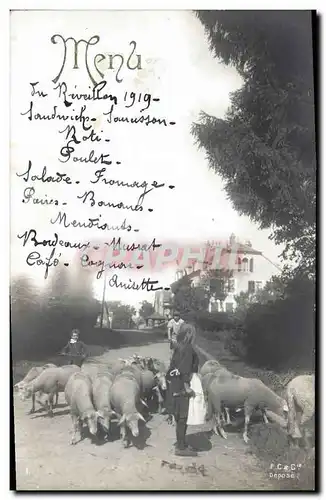 Menu
du Réveillon 1919-
Sandwichs- Saucisson-
Roti-
Poulet-
Salade- Fromage-
Poires- Bananes-
Mendiants-
Bordeaux- Muscat
Café- Cognac-
Anisette-
P.C & Cie
Déposé